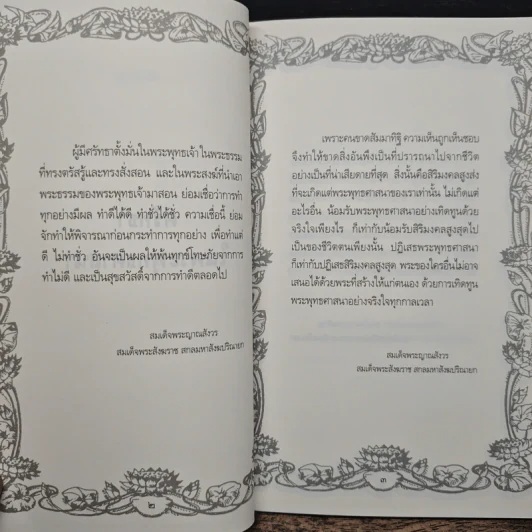 ผู้มีศรัทธาตั้งมั่นในพระพุทธเจ้า ในพระธรรม
ที่ทรงตรัสรู้และทรงสั่งสอน และในพระสงฆ์ที่นำเอา
พระธรรมของพระพุทธเจ้ามาสอน ย่อมเชื่อว่าการทำ
ทุกอย่างมีผล ทำดีได้ดี ทำชั่วได้ชั่ว ความเชื่อนี้ ย่อม
จักทำให้พิจารณาก่อนกระทำการทุกอย่าง เพื่อทำแต่
ดี ไม่ทำชั่ว อันจะเป็นผลให้พ้นทุกข์โทษภัยจากการ
ทำไม่ดี และเป็นสุขสวัสดิ์จากการทำดีตลอดไป
สมเด็จพระญาณสังวร
สมเด็จพระสังฆราช สกลมหาสังฆปริณายก
๒
เพราะคนขาดสัมมาทิฐิ ความเห็นถูกเห็นชอบ
จึงทำให้ขาดสิ่งอันพึงเป็นที่ปรารถนาไปจากชีวิต
อย่างเป็นที่น่าเสียดายที่สุด สิ่งนั้นคือสิริมงคลสูงส่ง
ที่จะเกิดแต่พระพุทธศาสนาของเราเท่านั้น ไม่เกิดแต่
อะไรอื่น น้อมรับพระพุทธศาสนาอย่างเทิดทูนด้วย
จริงใจเพียงไร ก็เท่ากับน้อมรับสิริมงคลสูงสุดไป
เป็นของชีวิตตนเพียงนั้น ปฏิเสธพระพุทธศาสนา
ก็เท่ากับปฏิเสธสิริมงคลสูงสุด พระของใครอื่นไม่อาจ
เสนอได้ด้วยพระที่สร้างให้แก่ตนเอง ด้วยการเทิดทูน
พระพุทธศาสนาอย่างจริงใจทุกกาลเวลา
สมเด็จพระญาณสังวร
สมเด็จพระสังฆราช สกลมหาสังฆปริณายก
๓